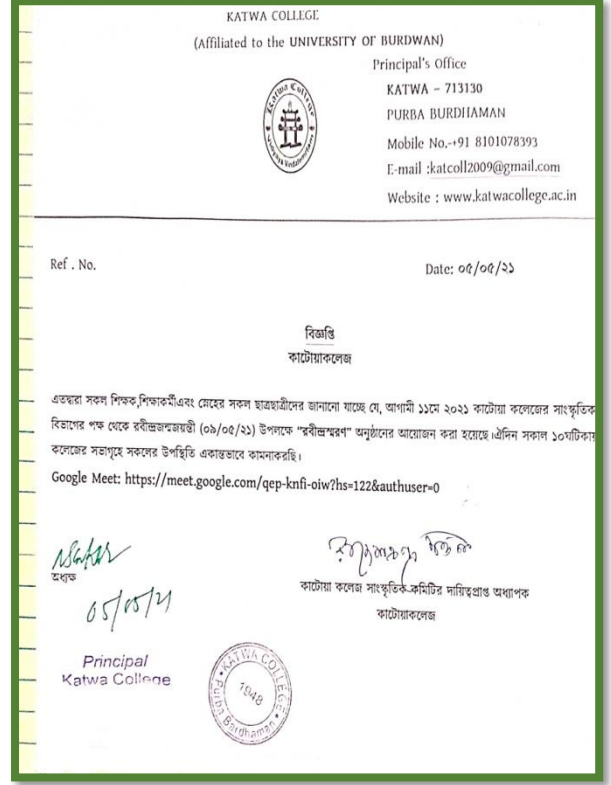 KATWA COLLEGE
(Affiliated to the UNIVERSITY OF BURDWAN)
Principal's Office
KATWA - 713130
PURBA BURDHAMAN
Mobile No.-+91 8101078393
E-mail :katcoll2009@gmail.com
Website : www.katwacollege.ac.in
Katwa College
Ref . No.
Date: ০৫/০৫/২১
বিজ্ঞপ্তি
কাটোয়াকলেজ
এতদ্বারা সকল শিক্ষক,শিক্ষাকর্মীএবং স্নেহের সকল ছাত্রছাত্রীদের জানানো যাচ্ছে যে, আগামী ১১মে ২০২১ কাটোয়া কলেজের সাংস্কৃতিক
বিভাগের পক্ষ থেকে রবীন্দ্রজন্মজয়ন্তী (০৯/০৫/২১) উপলক্ষে "রবীন্দ্রস্মরণ" অনুষ্ঠানের আয়োজন করা হয়েছে।ঐদিন সকাল ১০ঘটিকায়
কলেজের সভাগৃহে সকলের উপস্থিতি একান্তভাবে কামনাকরছি।
Google Meet: https://meet.google.com/qep-knfi-oiw?hs=122&authuser=0
অধ্যক্ষ
05/05/21
Principal
Katwa College
কাটোয়া কলেজ সাংস্কৃতিক কমিটির দায়িত্বপ্রাপ্ত অধ্যাপক
কাটোয়াকলেজ
KATWA COLLEGE
1948
Purba Bardhaman